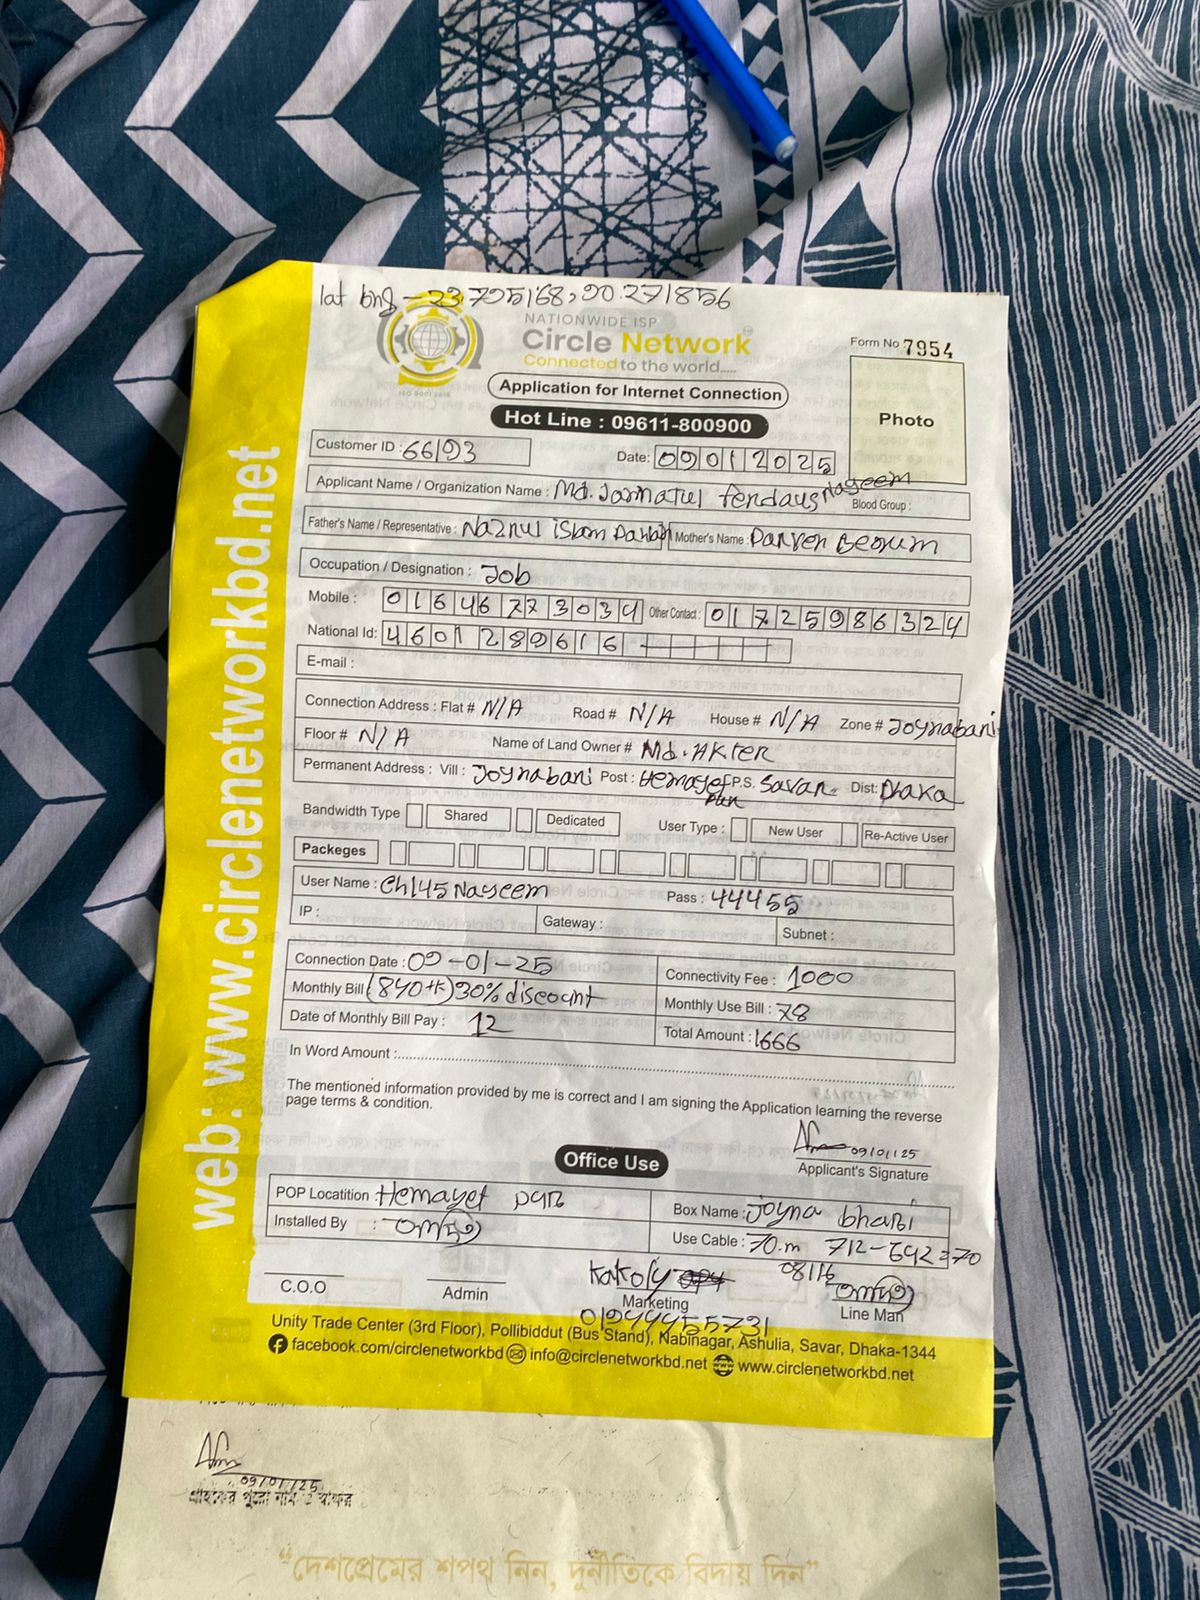 lat long - 23.795168, 90.271856
NATIONWIDE ISP
Circle Network
Connected to the world.....
ISO 9001:2015
Form No 7954
Application for Internet Connection
Photo
Hot Line : 09611-800900
Customer ID : 66193
Date: 09012025
Applicant Name / Organization Name : Md. Jannatul ferdaus Nayeem
Blood Group :
Father's Name / Representative : Naznul islam Mother's Name : Parven Begum
Occupation / Designation : Job
Mobile : 01646773034 Other Contact : 01725986324
National Id: 4601289616
E-mail :
Connection Address : Flat # N/A Road # N/A House # N/A Zone # Joynabari
Floor # N/A Name of Land Owner # Md. Akter
Permanent Address : Vill : Joynabari Post : Hemayet pur P.S. Savar Dist: Dhaka
Bandwidth Type Shared Dedicated User Type : New User Re-Active User
Packeges
User Name : Ch145Nayeem Pass : 44455
IP : Gateway : Subnet :
Connection Date : 09-01-25 Connectivity Fee : 1000
Monthly Bill (840tk) 30% discount Monthly Use Bill : 78
Date of Monthly Bill Pay : 12 Total Amount : 1666
In Word Amount :
The mentioned information provided by me is correct and I am signing the Application learning the reverse
page terms & condition.
09/01/25
Applicant's Signature
Office Use
POP Locatition : Hemayet pur Box Name : Joyna bhari
Installed By : Use Cable : 70.m 712-642=70
Kakoly
C.O.O Admin Marketing Line Man
01944455731
Unity Trade Center (3rd Floor), Pollibiddut (Bus Stand), Nabinagar, Ashulia, Savar, Dhaka-1344
facebook.com/circlenetworkbd info@circlenetworkbd.net www.circlenetworkbd.net
web: www.circlenetworkbd.net
09/01/25
গ্রাহকের পুরো নাম ও স্বাক্ষর
“দেশপ্রেমের শপথ নিন, দুর্নীতিকে বিদায় দিন”